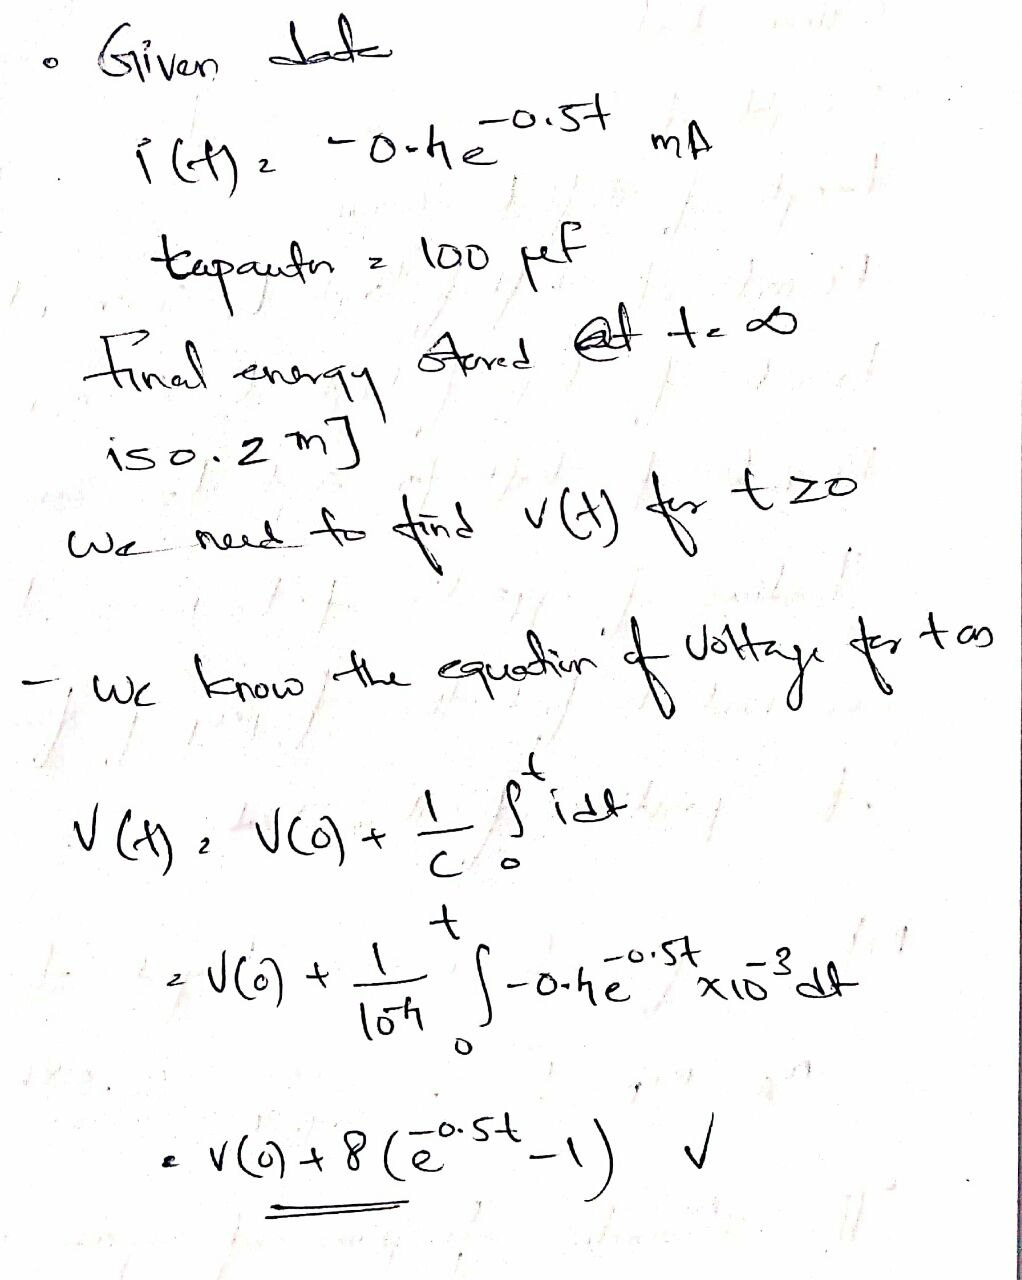 • Given data
i(t) = -0.4e^-0.5t mA
Capacitor = 100 μF
Final energy stored at t = ∞
is 0.2 mJ
We need to find v(t) for t ≥ 0
- We know the equation of Voltage for t as
V(t) = V(0) + 1/C ∫₀^t i dt
= V(0) + 1/10^-4 ∫₀^t -0.4e^-0.5t × 10^-3 dt
= V(0) + 8(e^-0.5t - 1) ✓